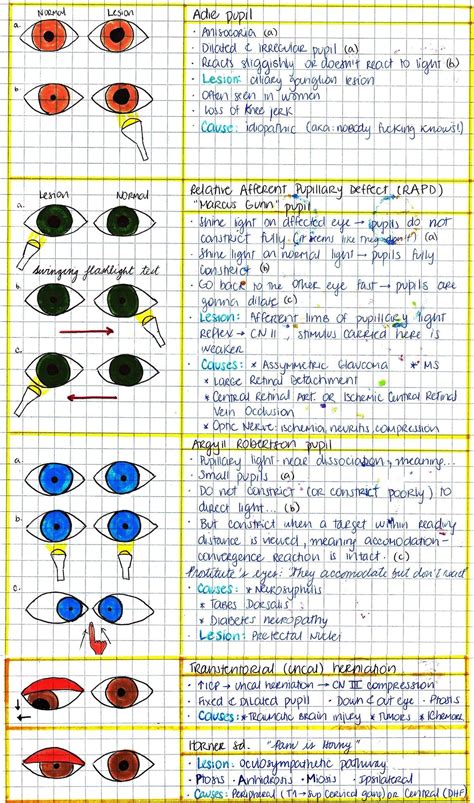 Normal Lesion
a.
b.
Adie pupil
· Anisocoria (a)
· Dilated & irregular pupil (a)
· Reacts sluggishly or doesn't react to light (b)
· Lesion: ciliary ganglion lesion
· Often seen in women
· Loss of knee jerk
· Cause: idiopathic (aka: nobody fucking knows!)
Lesion Normal
a.
Swinging flashlight test
b.
c.
Relative Afferent Pupillary Deffect (RAPD)
"Marcus Gunn" pupil
· Shine light on affected eye → pupils do not
constrict fully (it seems like they don't!) (a)
· Shine light on normal light → pupils fully
constrict (b)
· Go back to the other eye fast → pupils are
gonna dilate (c)
· Lesion: Afferent limb of pupillary light
reflex → CN II, stimulus carried here is
weaker
· Causes: * Assymmetric Glaucoma * MS
* Large Retinal Detachment
* Central Retinal Art. or Ischemic Central Retinal
Vein Occlusion
* Optic Nerve: ischemia, neuritis, compression
a.
b.
c.
Argyll Robertson pupil
· Pupillary light-near dissociation, meaning...
Small pupils (a)
· Do not constrict (or constrict poorly) to
direct light... (b)
· But constrict when a target within reading
distance is viewed, meaning accomodation-
convergence reaction is intact. (c)
Prostitute's eyes: They accomodate but don't react
· Causes: * Neurosyphilis
* Tabes Dorsalis
* Diabetes neuropathy
· Lesion: Pretectal Nuclei
Transtentorial (uncal) herniation
· ↑ICP → uncal herniation → CN III compression
· Fixed & dilated pupil · Down & out eye · Ptosis
· Causes: * Traumatic brain injury * Tumors
Horner sd. "Pam is Horny"
· Lesion: oculosympathetic pathway
· Ptosis · Anhidrosis · Miosis · Ipsilateral
· Causes: Peripheral (T1 → sup cervical gang) or Central (DHP